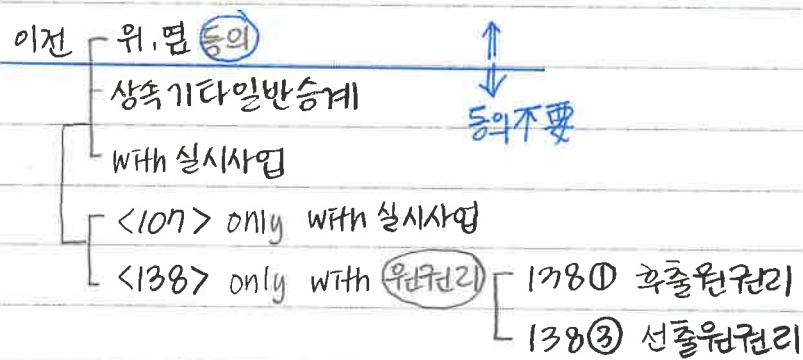 이전 위,염 동의
상속 기타 일반승계
동의不要
with 실시사업
<107> only with 실시사업
<138> only with 원권리 138① 후출원권리
138③ 선출원권리